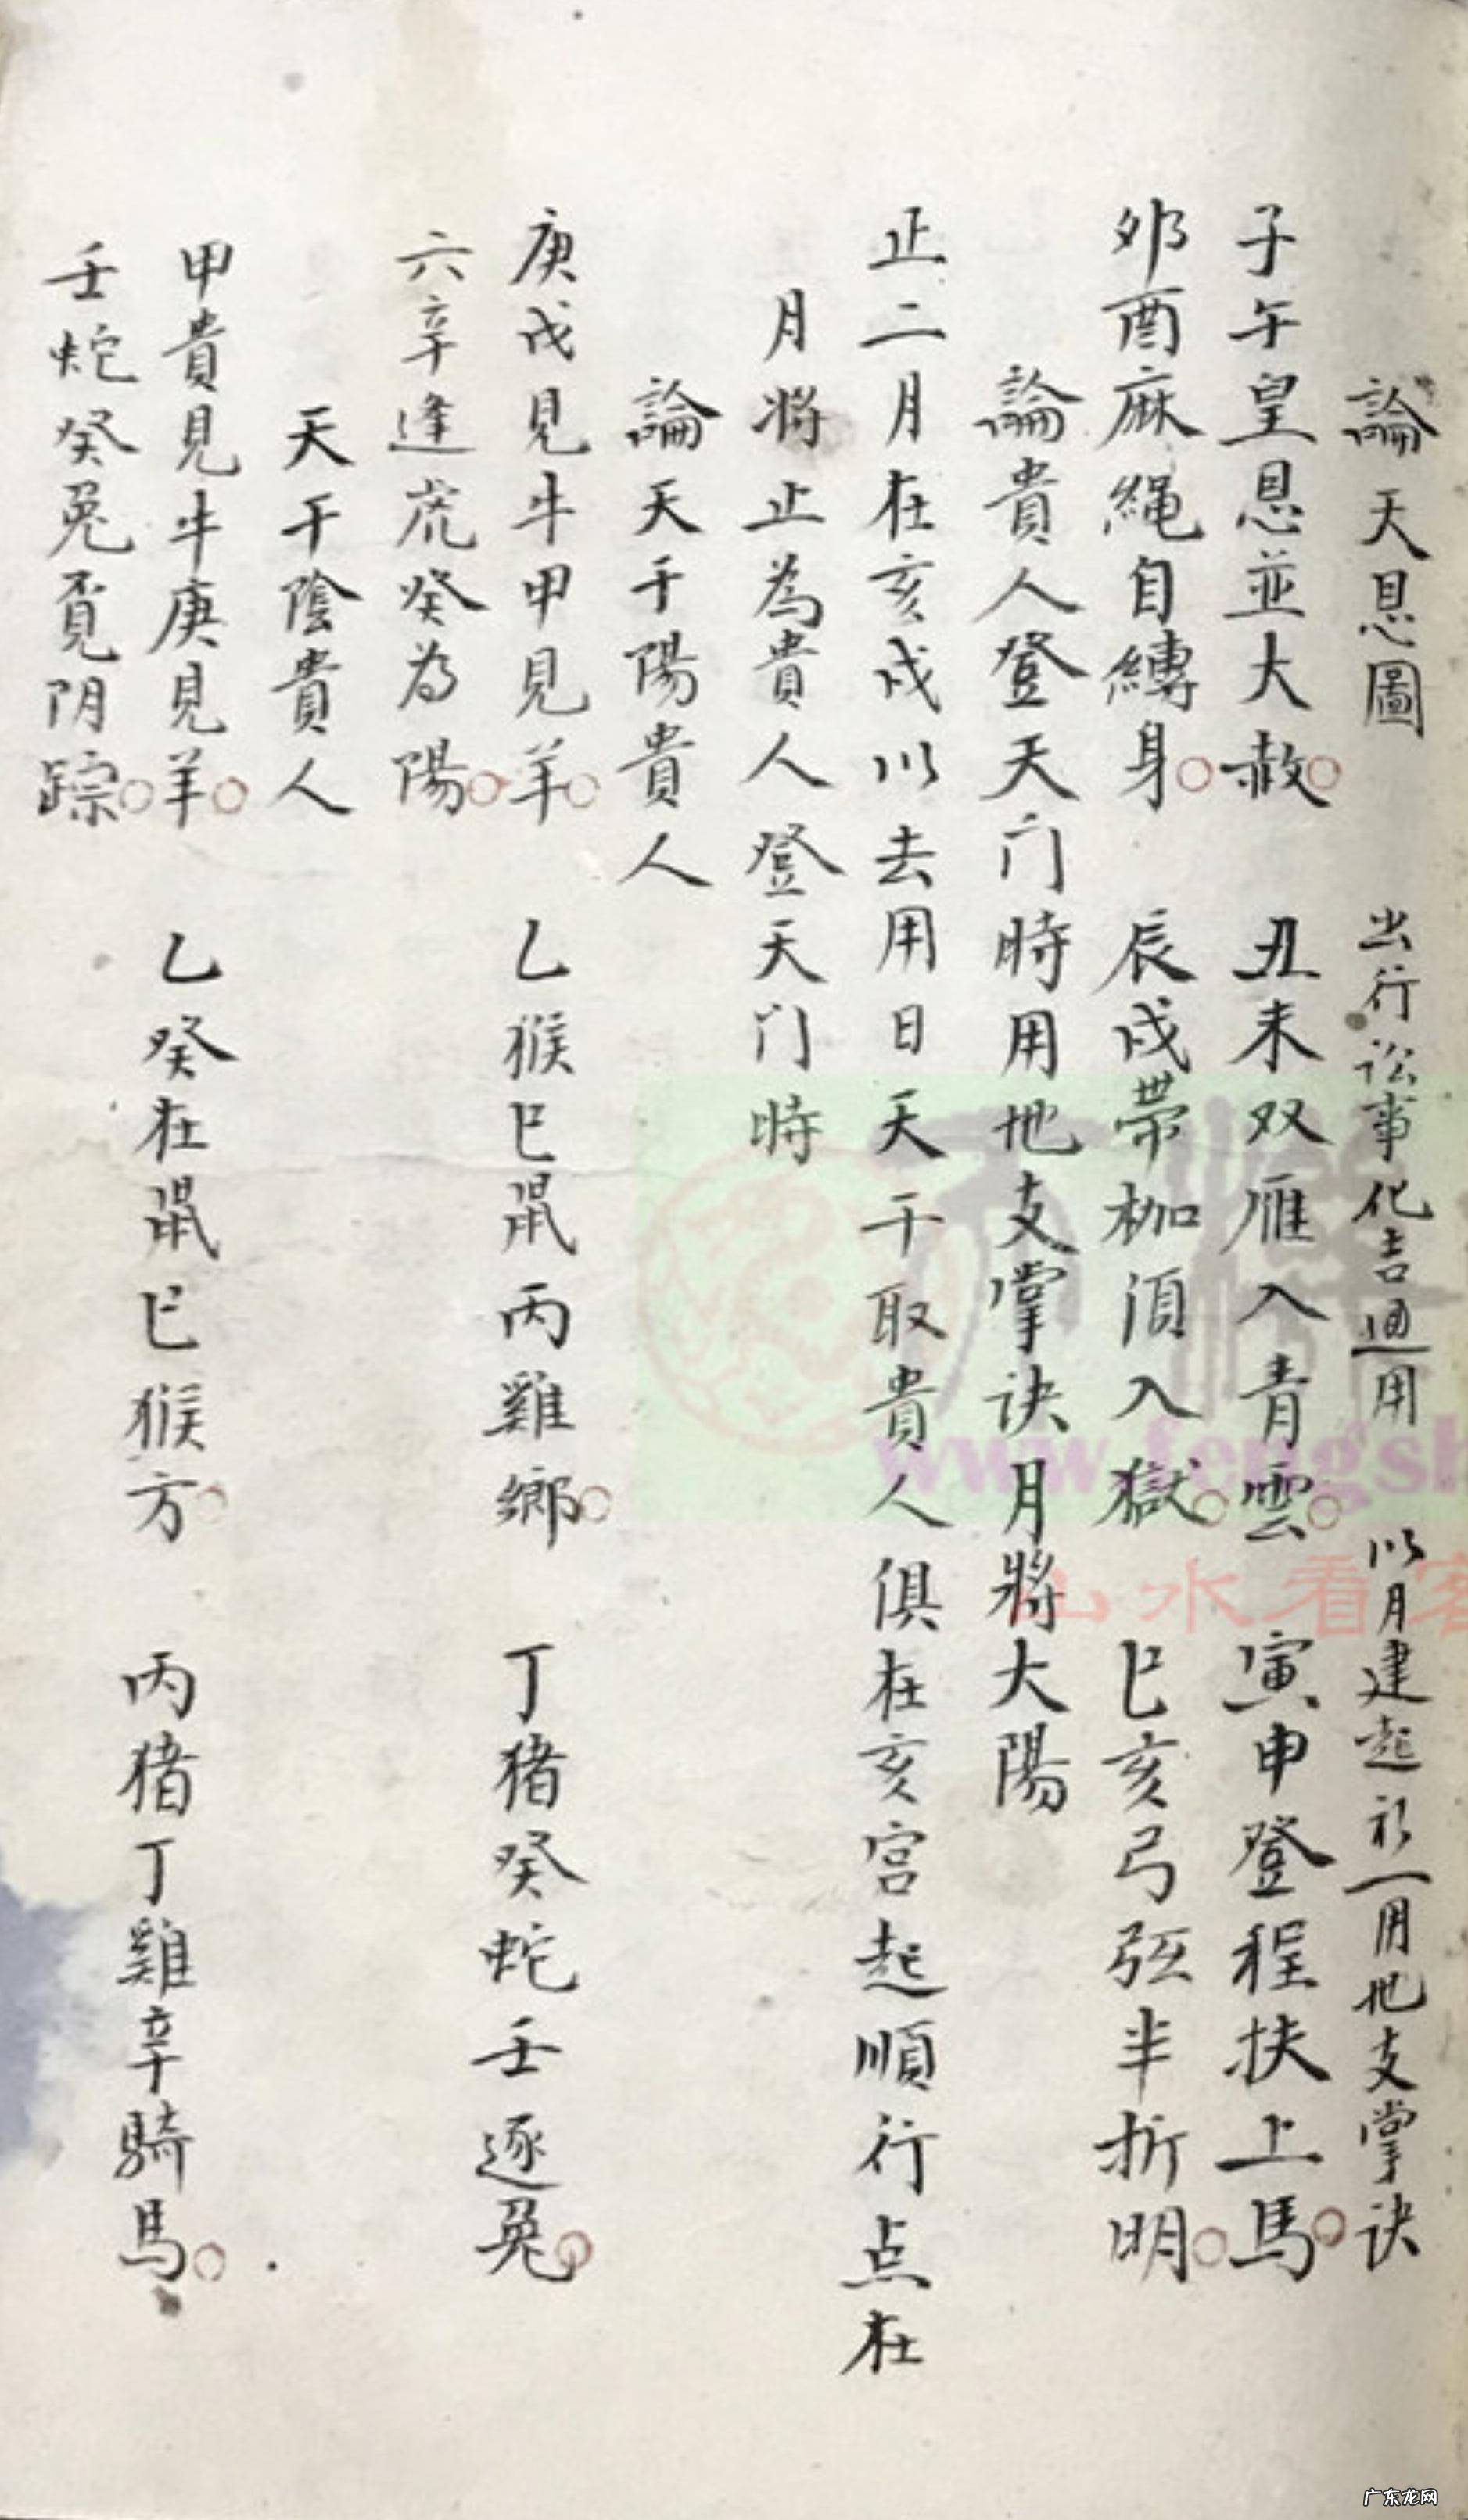 論天恩圖 出行訟事化吉通用 以月建起初一用地支掌訣
子午皇恩並大赦 丑未双雁入青雲 寅申登程扶上馬
夘酉麻繩自縛身 辰戌帶枷須入獄 巳亥弓弦半折明
論貴人登天门時用地支掌诀月將大陽
正二月在亥戌以去用日天干取貴人俱在亥宫起順行点在
月將止為貴人登天门時
論天干陽貴人
庚戊見牛甲見羊 乙猴已鼠丙雞鄉 丁猪癸蛇壬逐兔
六辛逢虎癸为陽
天干陰貴人
甲貴見牛庚見羊 乙癸在鼠已猴方 丙猪丁雞辛騎馬
壬蛇癸兔覓阴踪
www.fengsh
山水看客
广东龙网